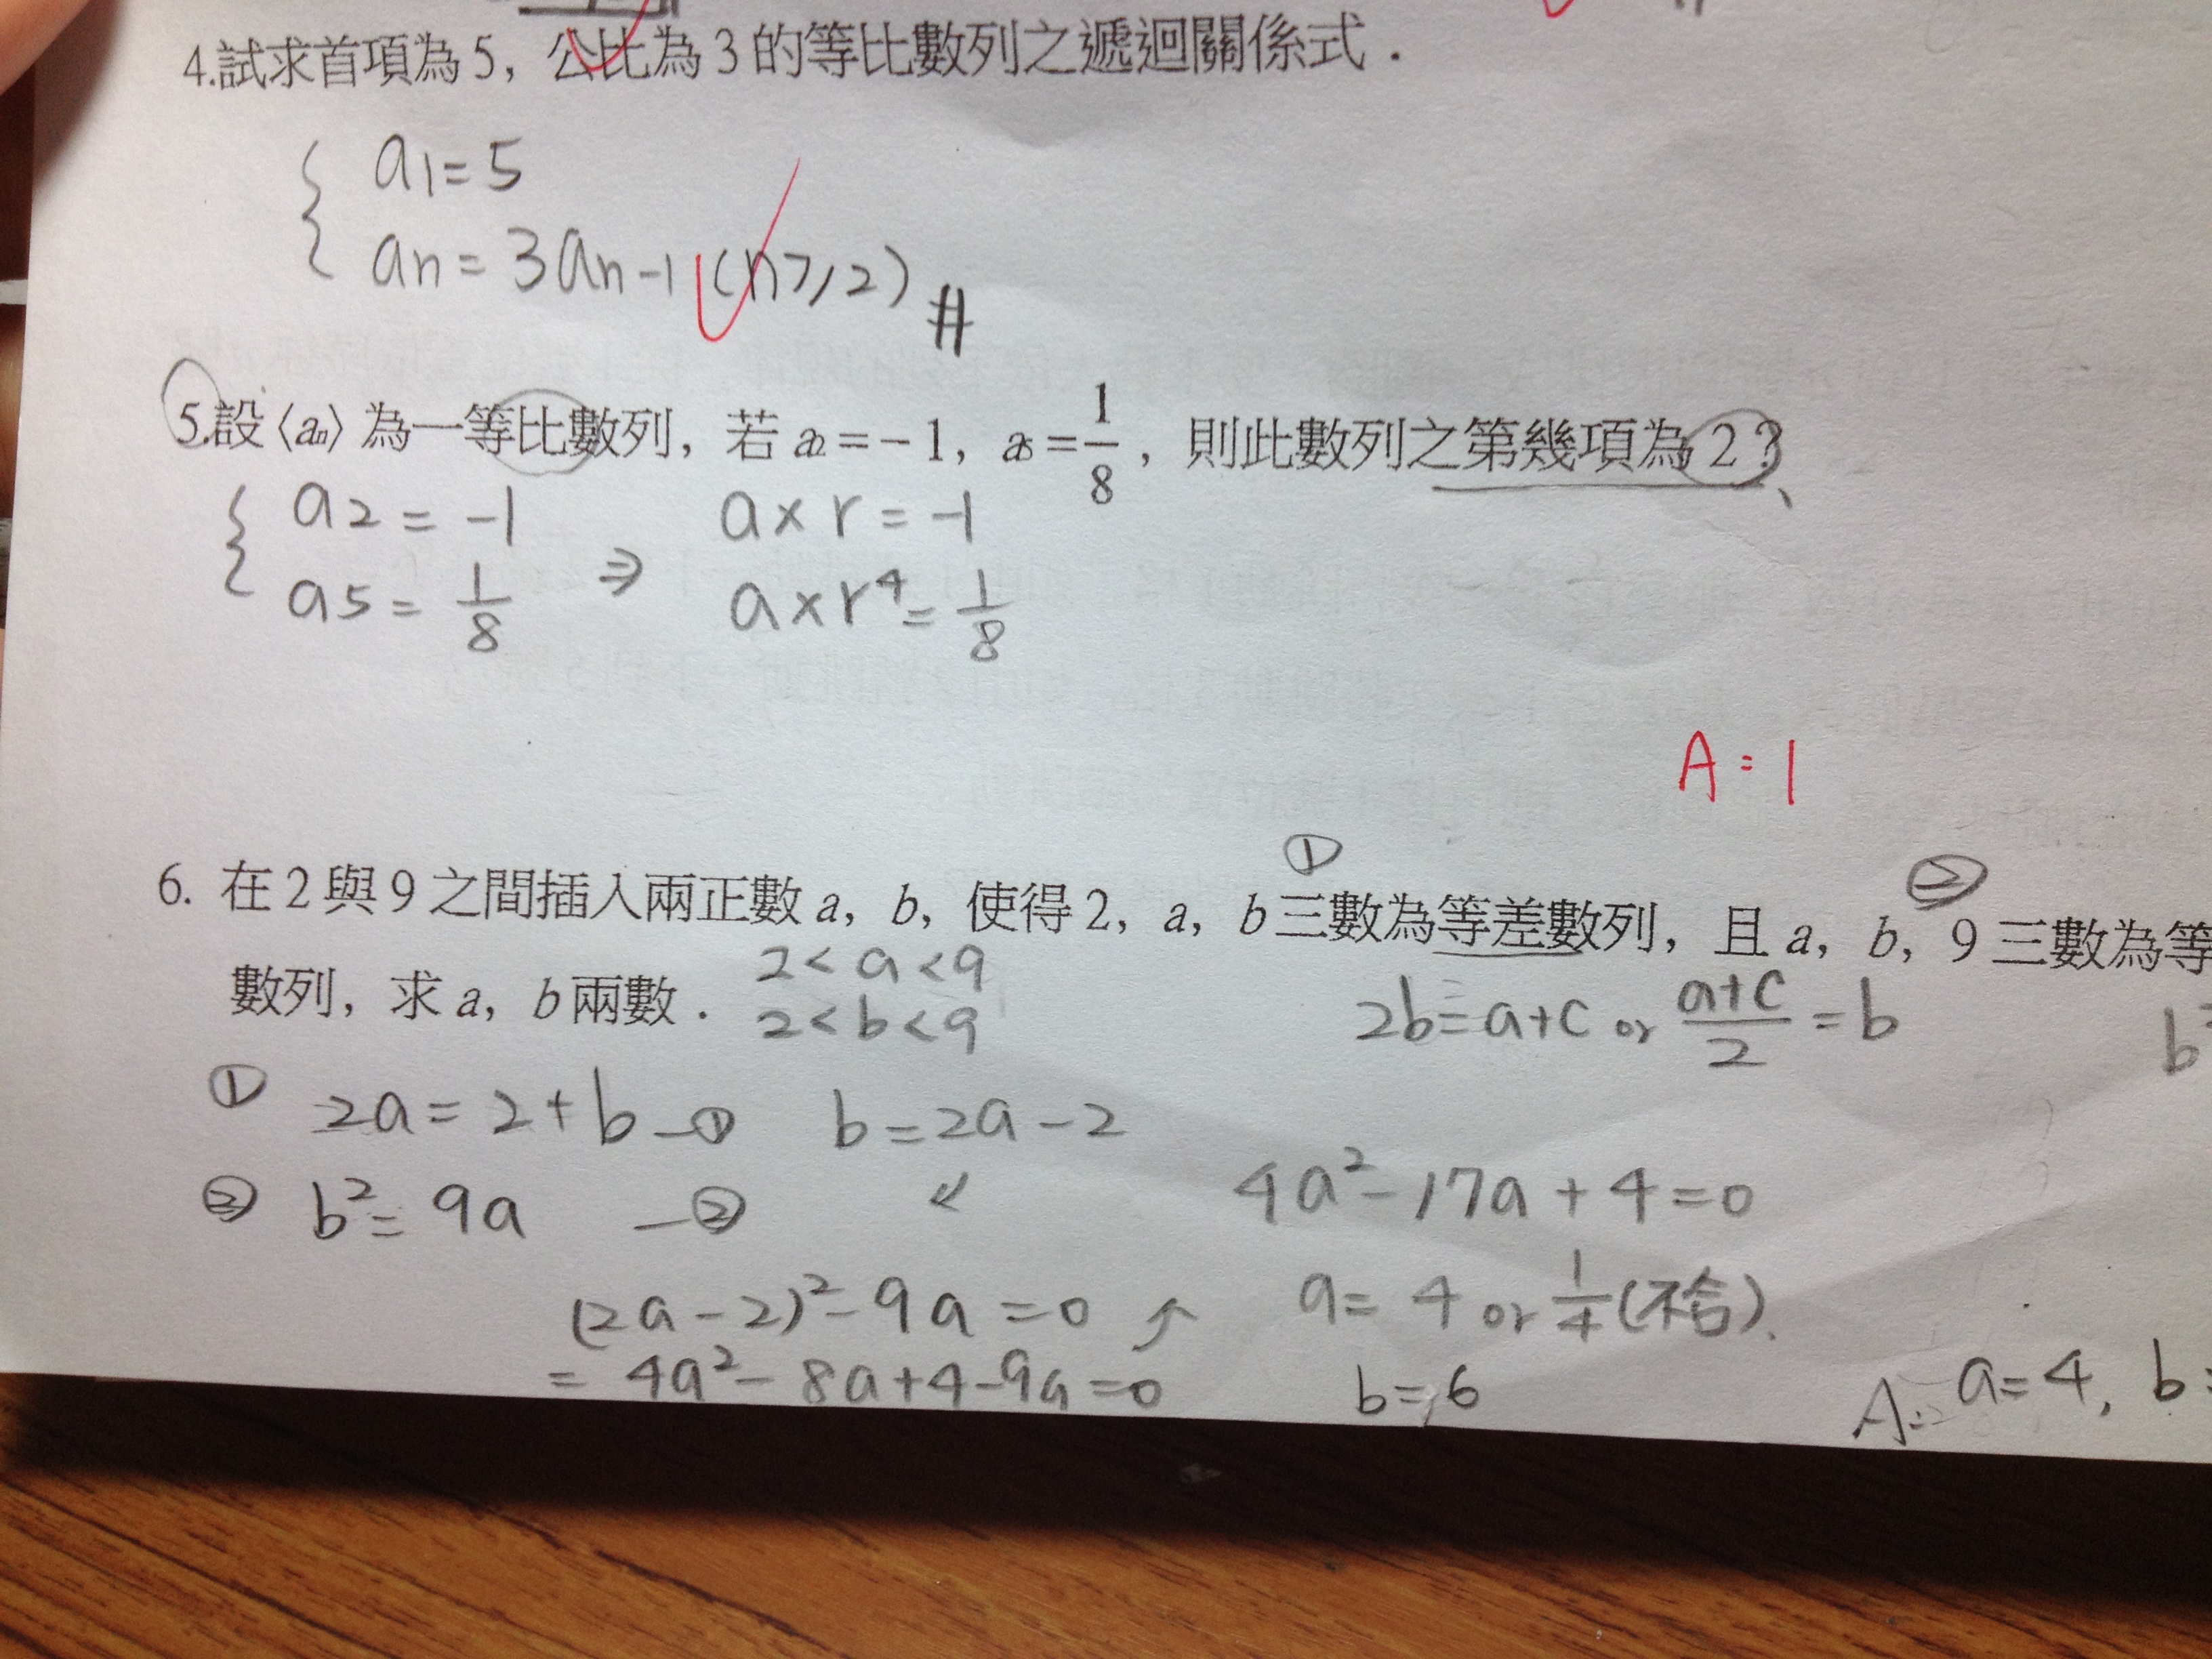 4.試求首項為 5，公比為 3 的等比數列之遞迴關係式．
a1=5
an=3an-1 (n≥2) #
5.設〈an〉為一等比數列，若 a2=-1，a5=1/8，則此數列之第幾項為 2？
a2=-1 ⇒ a×r=-1
a5=1/8 a×r⁴=1/8
A=1
① ②
6. 在 2 與 9 之間插入兩正數 a，b，使得 2，a，b 三數為等差數列，且 a，b，9 三數為等
數列，求 a，b 兩數．
2<a<9
2<b<9
2b=a+c or (a+c)/2=b
① 2a=2+b —① b=2a-2
② b²=9a —② ↙ 4a²-17a+4=0
(2a-2)²-9a=0 ↗ a=4 or 1/4(不合).
=4a²-8a+4-9a=0 b=6
A: a=4, b=